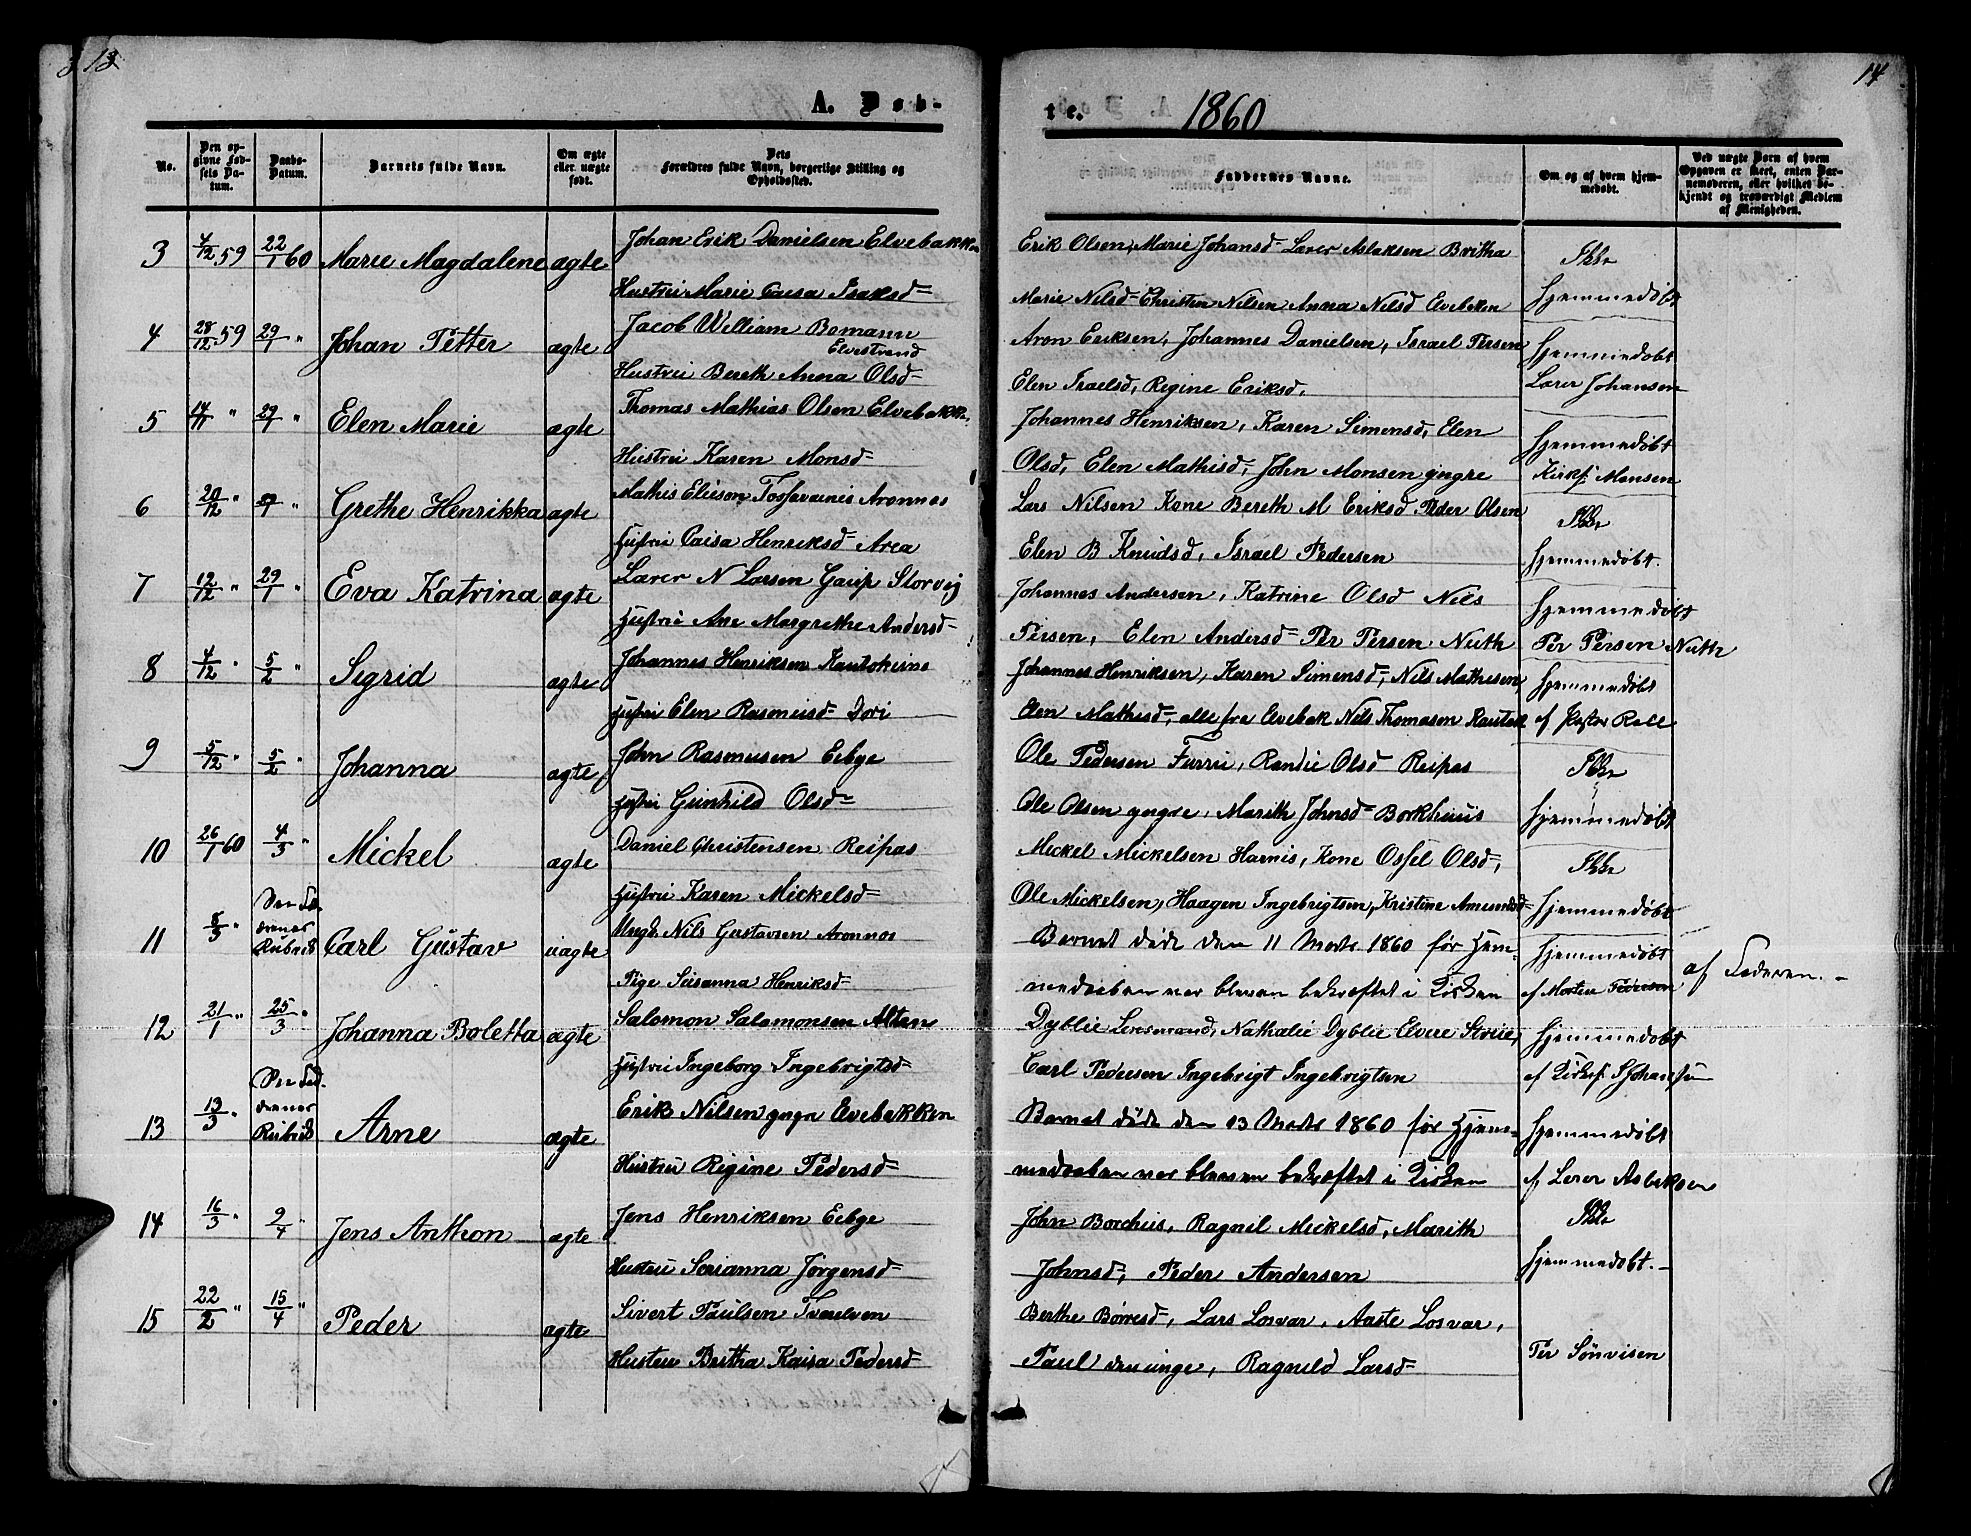 13
14
A. Døb-
te.
1860
No.
Den op-
givne Fød-
sels Da-
tum.
Daabs-
Datum.
Barnets fulde Navn.
Om ægte
eller uægte
født.
Dets
Forældres fulde Navn, borgerlige Stilling og
Opholdssted.
Faddernes Navne.
Om og af hvem hjem-
medøbt.
Ved uægte Børn af hvem
Opgaven er skeet, enten Bar-
nemoderen, eller hvilket be-
kjendt og troværdigt Medlem
af Menigheden.
3 4/12 59 22/1 60 Marie Magdalene ægte
Johan Erik Danielsen Elvebakken
Hustru Marie Caisa Isaksd=
Erik Olsen, Marie Johansd= Lærer Aslaksen Britha
Marie Nilsd= Christen Nilsen Anna Nilsd Elvebakken
hjemmedøbt
4 28/12 59 29/1 " Johan Petter ægte
Jacob William Bomann
Elvestrand
Hustru Bereth Anna Olsd=
Aron Eriksen, Johannes Danielsen, Israel Persen
Elen Israelsd, Regine Eriksd,
hjemmedøbt
Lærer Johansen
5 14/11 " 29/1 " Elen Marie ægte
Thomas Mathias Olsen Elvebakk
Hustru Karen Monsd=
Johannes Henriksen, Karen Simonsd, Elen
Olsd, Elen Mathisd, John Monsen yngre
hjemmedøbt
Kirks Monsen
6 20/12 " 29/1 " Grethe Henrikka ægte
Mathis Elieson Tossavainis Aronnæs
Hustru Caisa Henriksd= Area
Lars Nilsen Kone Bereth M Eriksd Peder Olsen
Elen B Knudsd, Israel Pedersen
hjemmedøbt.
7 12/12 " 29/1 " Eva Katrina ægte
Lærer N Larsen Gaup Storvig
Hustru Ane Margrethe Andersd=
Johannes Andersen, Katrine Olsd Nils
Persen, Elen Andersd= Per Persen Nuth
hjemmedøbt
Per Persen Nuth
8 4/12 " 5/2 " Sigrid ægte
Johannes Henriksen Kautokeino
Hustru Elen Rasmusd= Dori
Johannes Henriksen, Karen Simonsd, Nils Mathisen,
Elen Mathisd, alle fra Elvebak Nils Thomasen Kautok
hjemmedøbt
af Pastor Roll
9 5/12 " 5/2 " Johanna ægte
John Rasmusen Eibye
Hustru Gunhild Olsd=
Ole Pedersen Furru, Randie Olsd Reipas
Ole Olsen yngre, Marith Johnsd= Borkhuus
hjemmedøbt
10 26/1 60 4/3 " Mickel ægte
Daniel Christensen Reipas
Hustru Karen Mickelsd=
Mickel Mickelsen Harnis, Kone Ossel Olsd,
Ole Mickelsen, Haagen Ingebrigtsen, Kristine Amundsd=
hjemmedøbt
11 8/3 " Carl Gustav uægte
Ungk. Nils Gustavsen Aronnæs
Pige Susanna Henriksd=
Barnet døde den 11 Marts 1860 før Hjem-
medaaben var bleven bekræftet i Kirken
hjemmedøbt
af Morten Pedersen
af Faderen. -
12 21/1 " 25/3 " Johanna Boletta ægte
Salomon Salamonsen Alten
Hustru Ingeborg Ingebrigtsd=
Dyblie Lensmand, Nathalie Dyblie Elvere Strue,
Carl Pedersen Ingebrigt Ingebrigtsen
hjemmedøbt
13 13/3 " Arne ægte
Erik Nilsen yngr Elvebakken
Hustru Regine Pedersd=
Barnet døde den 13 Marts 1860 før Hjem-
medaaben var bleven bekræftet i Kirken
hjemmedøbt
af Lærer Aslaksen
14 16/3 " 9/4 " Jens Anthon ægte
Jens Henriksen Eibye
Hustru Serianna Jørgensd=
John Borchus, Ragnil Mickelsd, Marith
Johnsd, Peder Andersen
hjemmedøbt.
15 22/2 " 15/4 " Peder ægte
Sivert Paulsen Tverelven
Hustru Bertha Kaisa Pedersd=
Berthe Børresd, Lars Losvar, Aaste Losvar,
Paul den unge, Ragnild Larsd=
Per Sønvisen